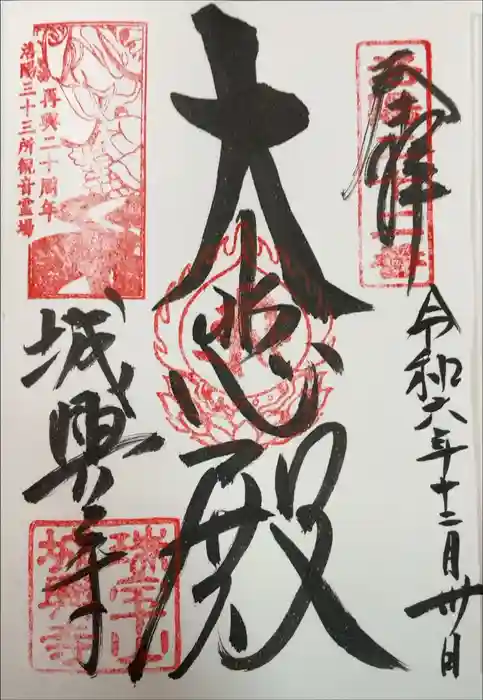 奉拝
令和六年十二月卅日
大悲殿
城興寺
再興二十周年
洛陽三十三所観音霊場
瑞宝山
城興寺